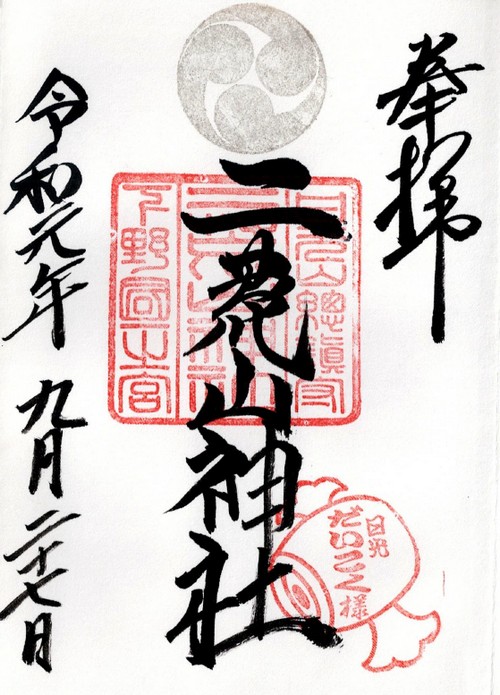 奉拝
二荒山神社
日光山總鎮守
二荒山神社
下野国一之宮
日光
だいこく様
令和元年
九月二十七日